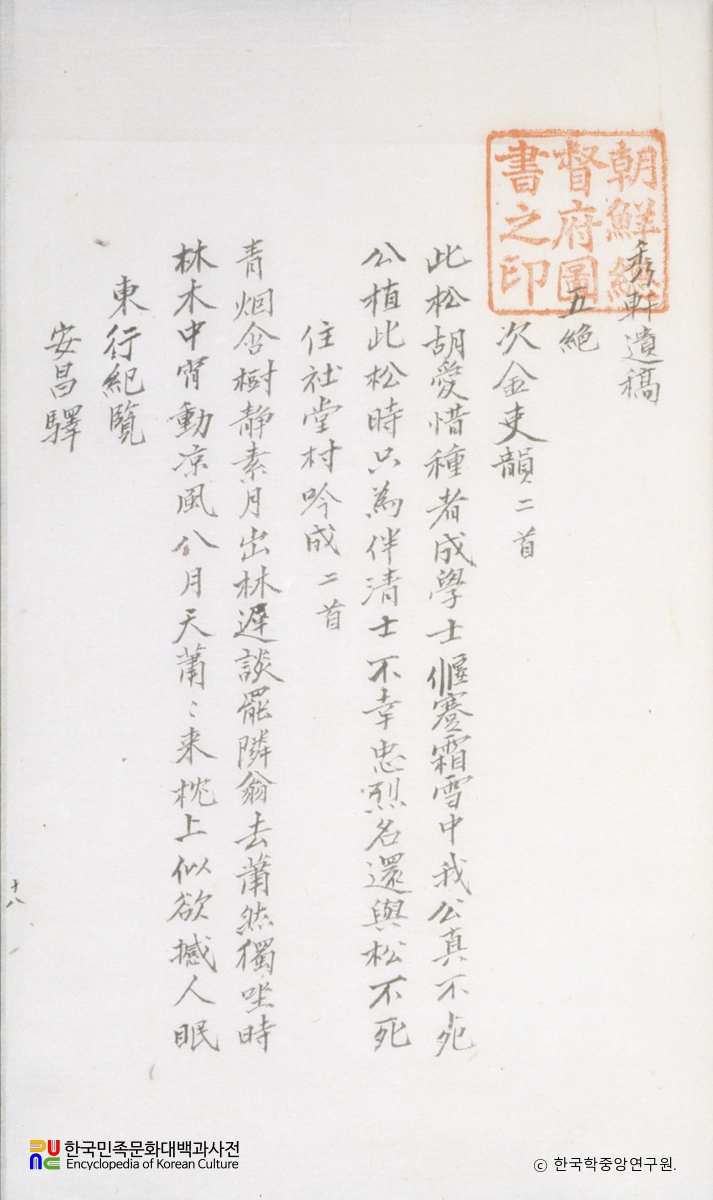 朝鮮總
督府圖
書之印
秀軒遺稿
五絶
次金吏韻二首
此松胡愛惜種者成學士偃蹇霜雪中我公真不死
公植此松時只爲伴清士不幸忠烈名還與松不死
住社堂村吟成二首
青烟含樹静素月出林遲談罷隣翁去蕭然獨坐時
林木中宵動凉風八月天蕭〻来枕上似欲撼人眠
東行紀覽
安昌驛
十八
한국민족문화대백과사전
Encyclopedia of Korean Culture
ⓒ 한국학중앙연구원.